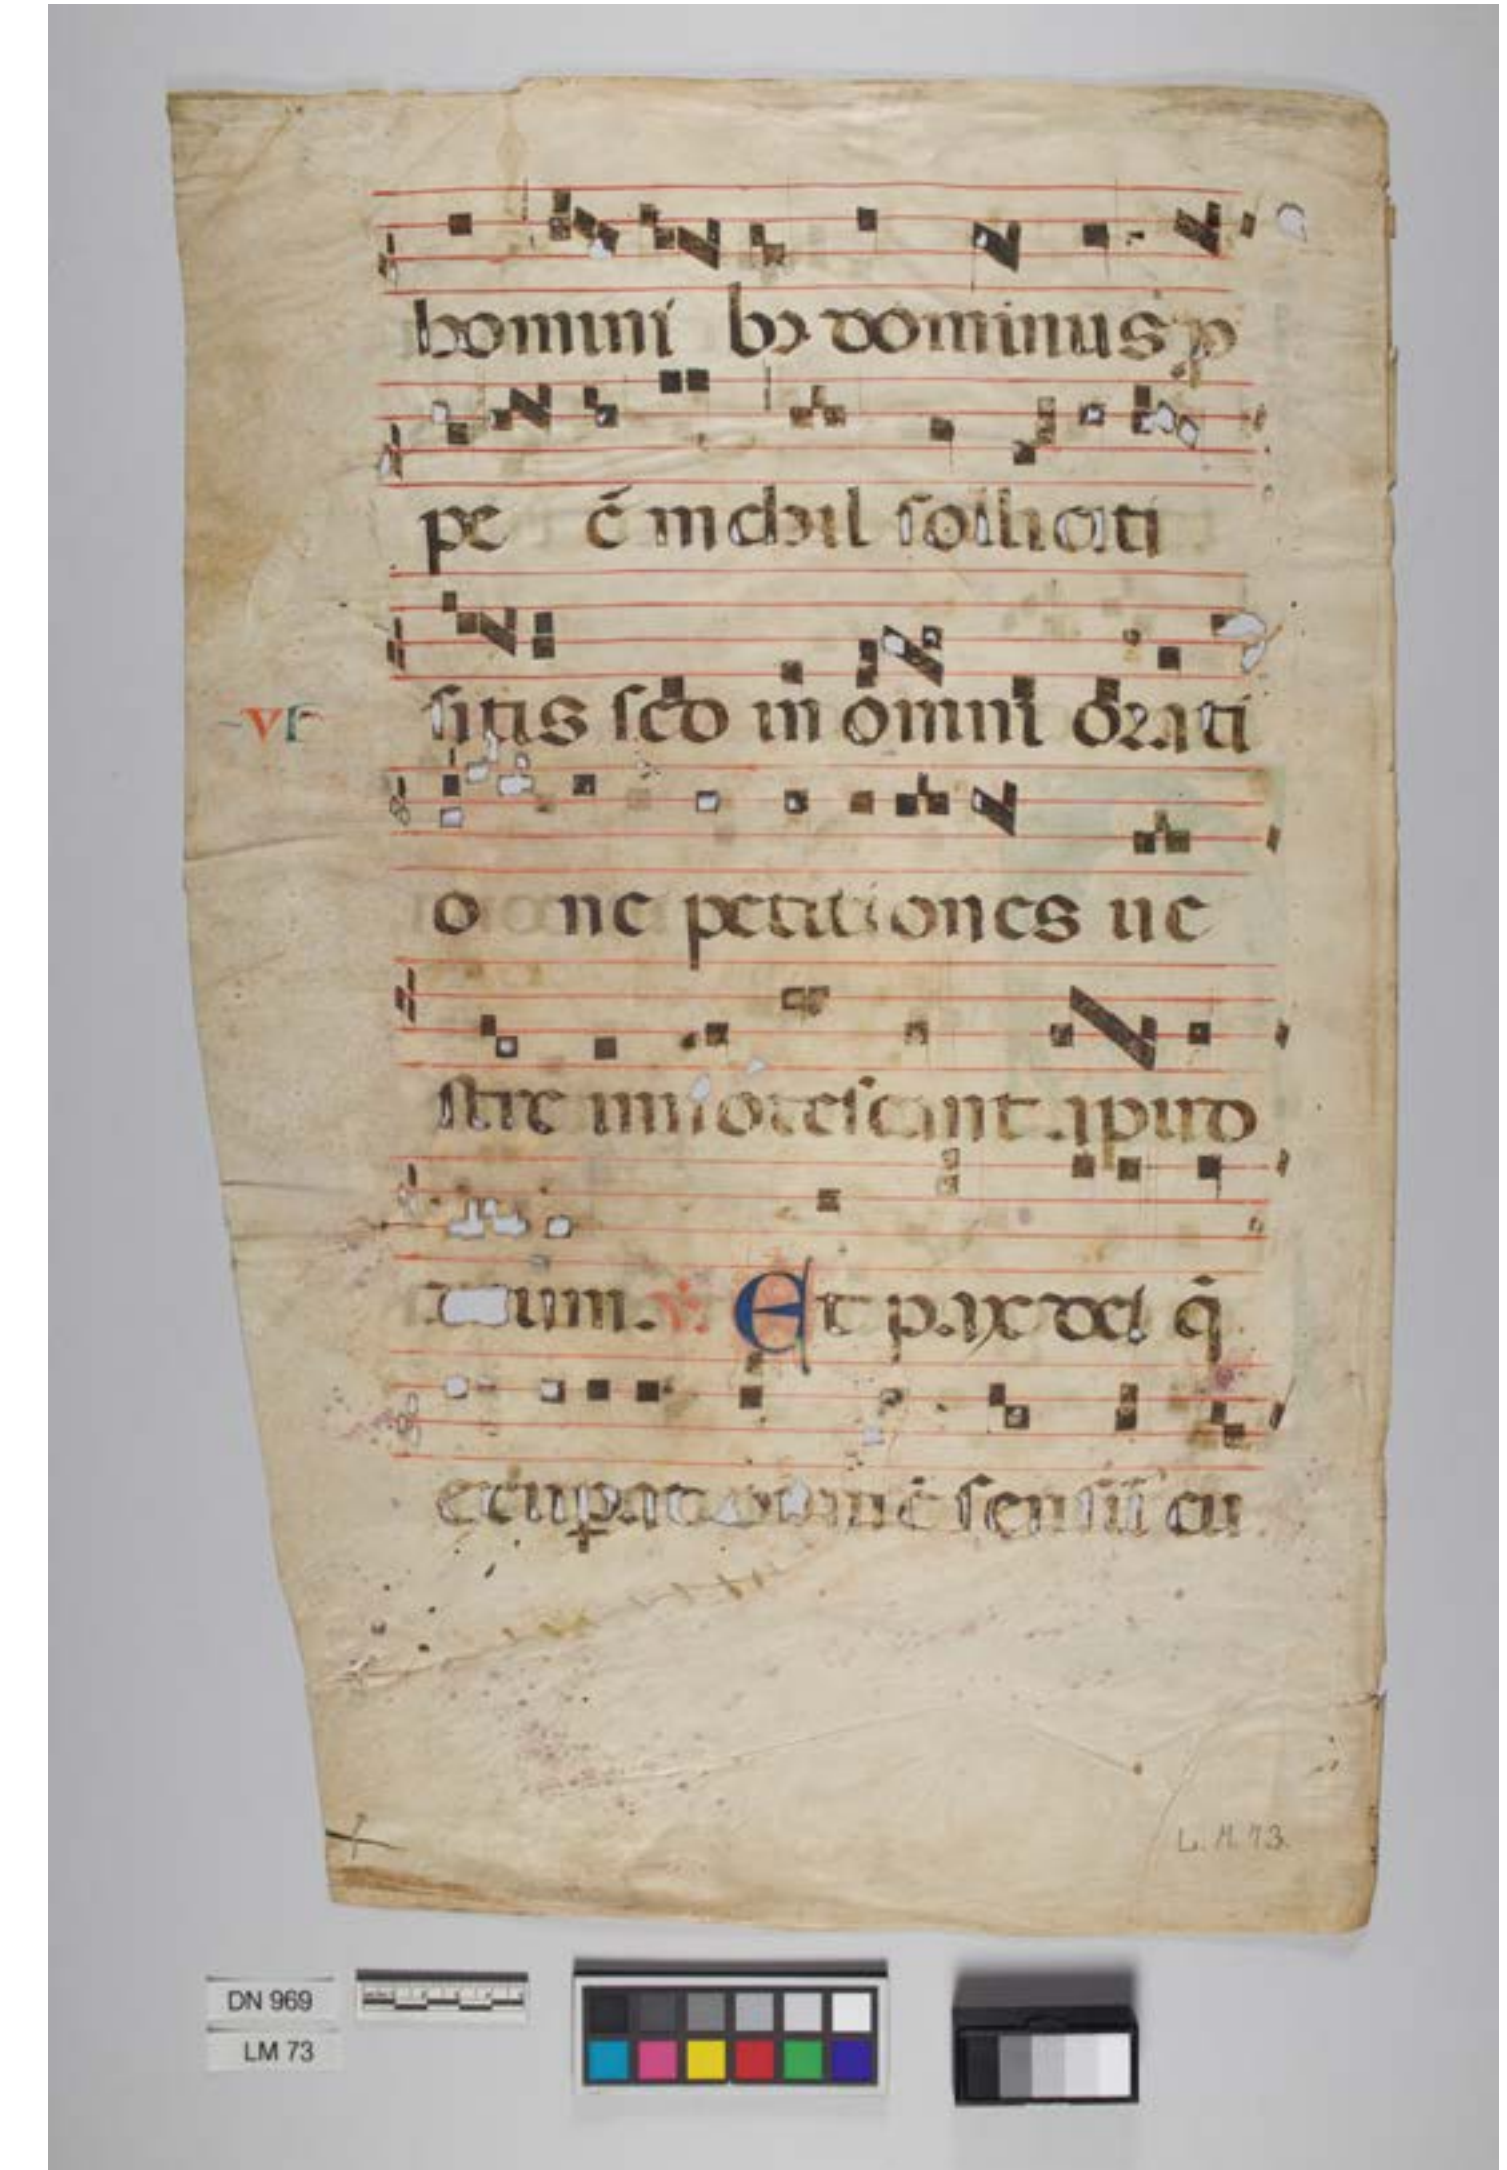 homini bꝫ dominus p
pe ē nichil solliciti
sitis sed in omni orati
vſ
o ne petitiones ue
stre innotescant apud
deum. ℣. Et pax dei q̄
exuꝑat omnē sensū cu
L. M. 73.
DN 969
LM 73